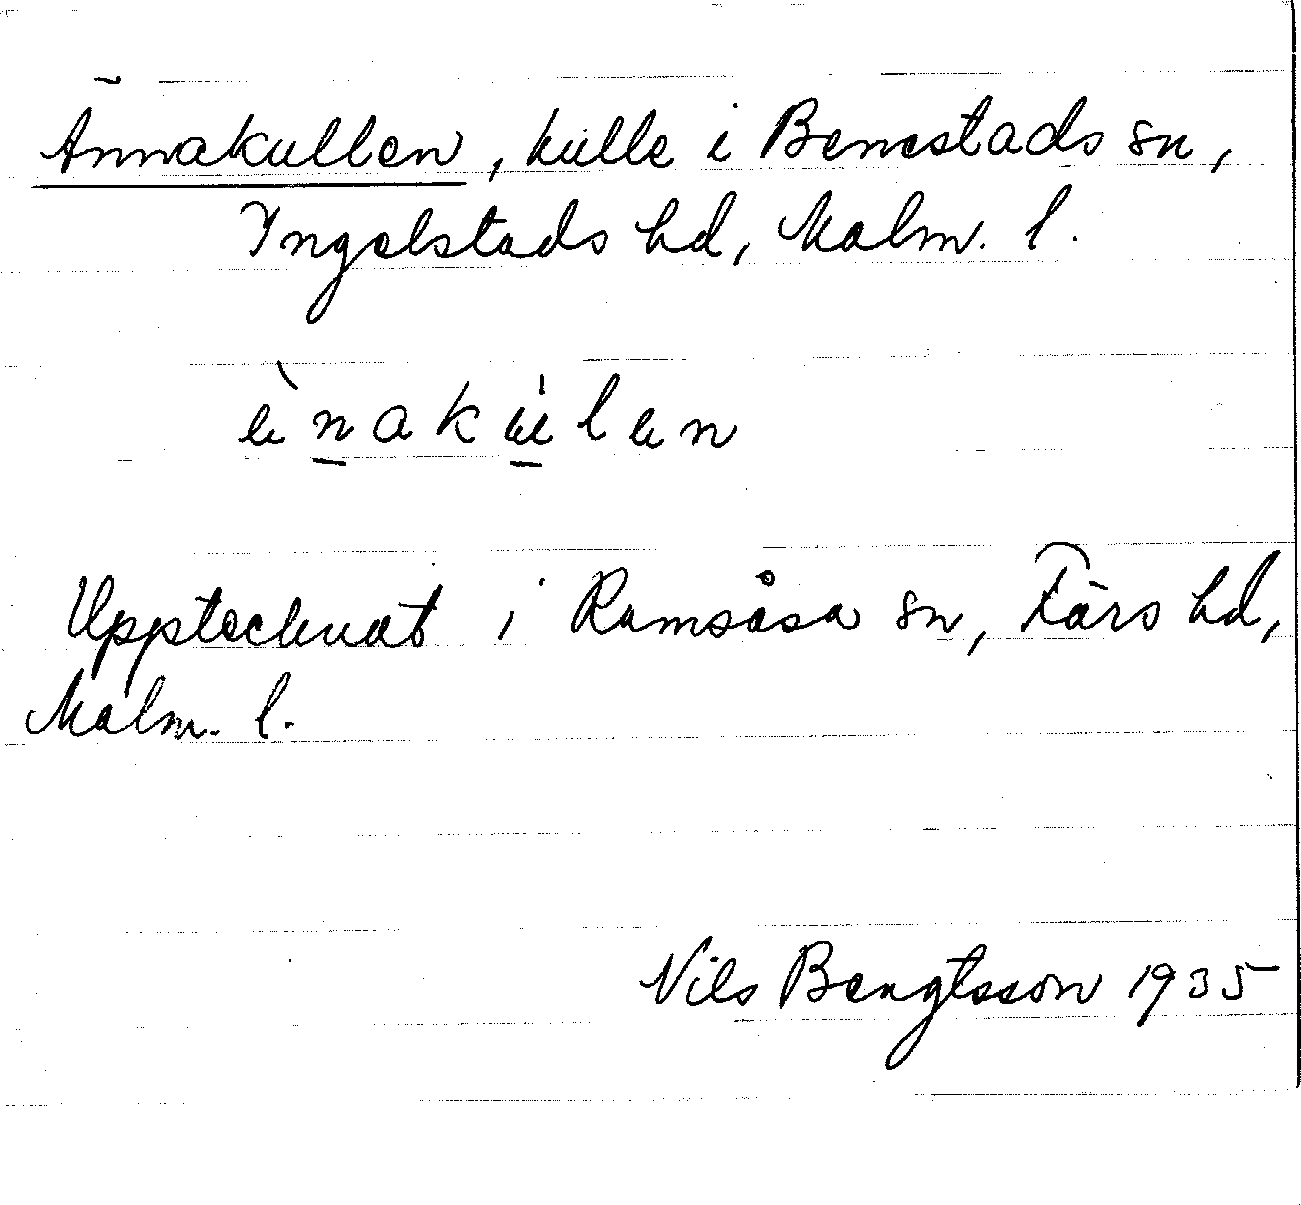 Ännakullen, kulle i Benestads sn,
Ingelstads hd, Malm. l.
Upptecknat i Ramsåsa sn, Färs hd,
Malm. l.
Nils Bengtsson 1935